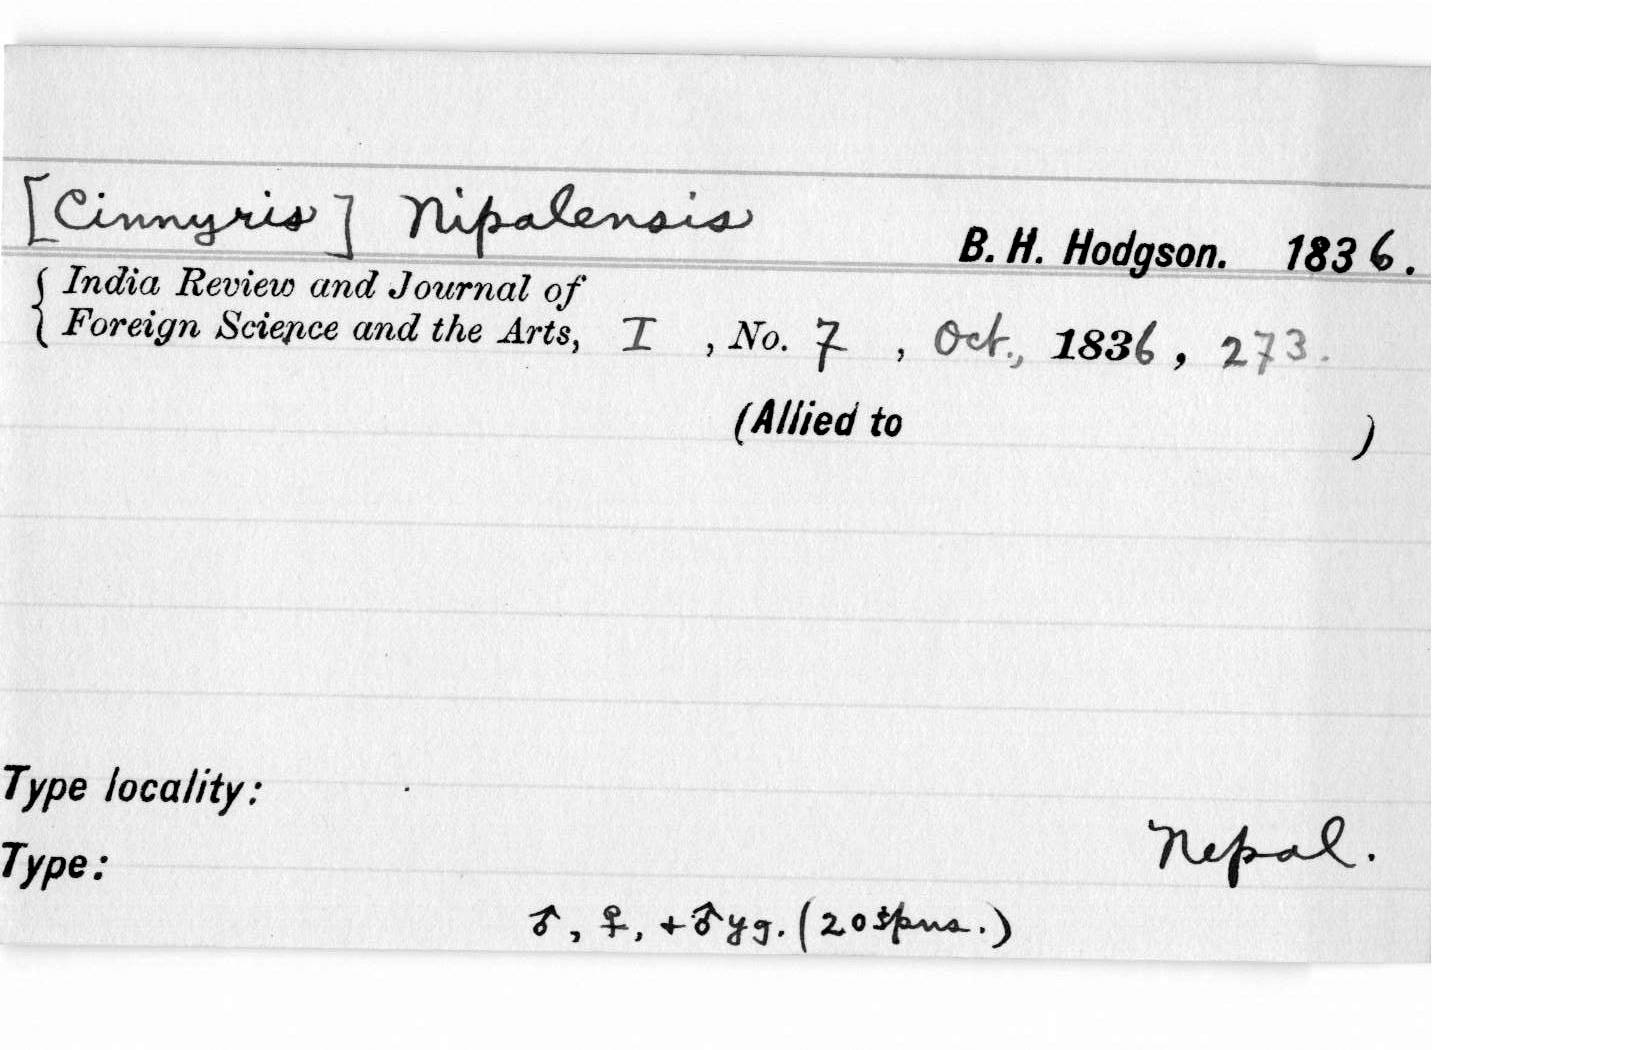 [Cinnyris] Nipalensis
B. H. Hodgson. 1836.
{ India Review and Journal of
Foreign Science and the Arts, I , No. 7 , Oct., 1836, 273.
(Allied to )
Type locality:
Nepal.
Type:
♂, ♀, + ♂ yg. (20 spns.)